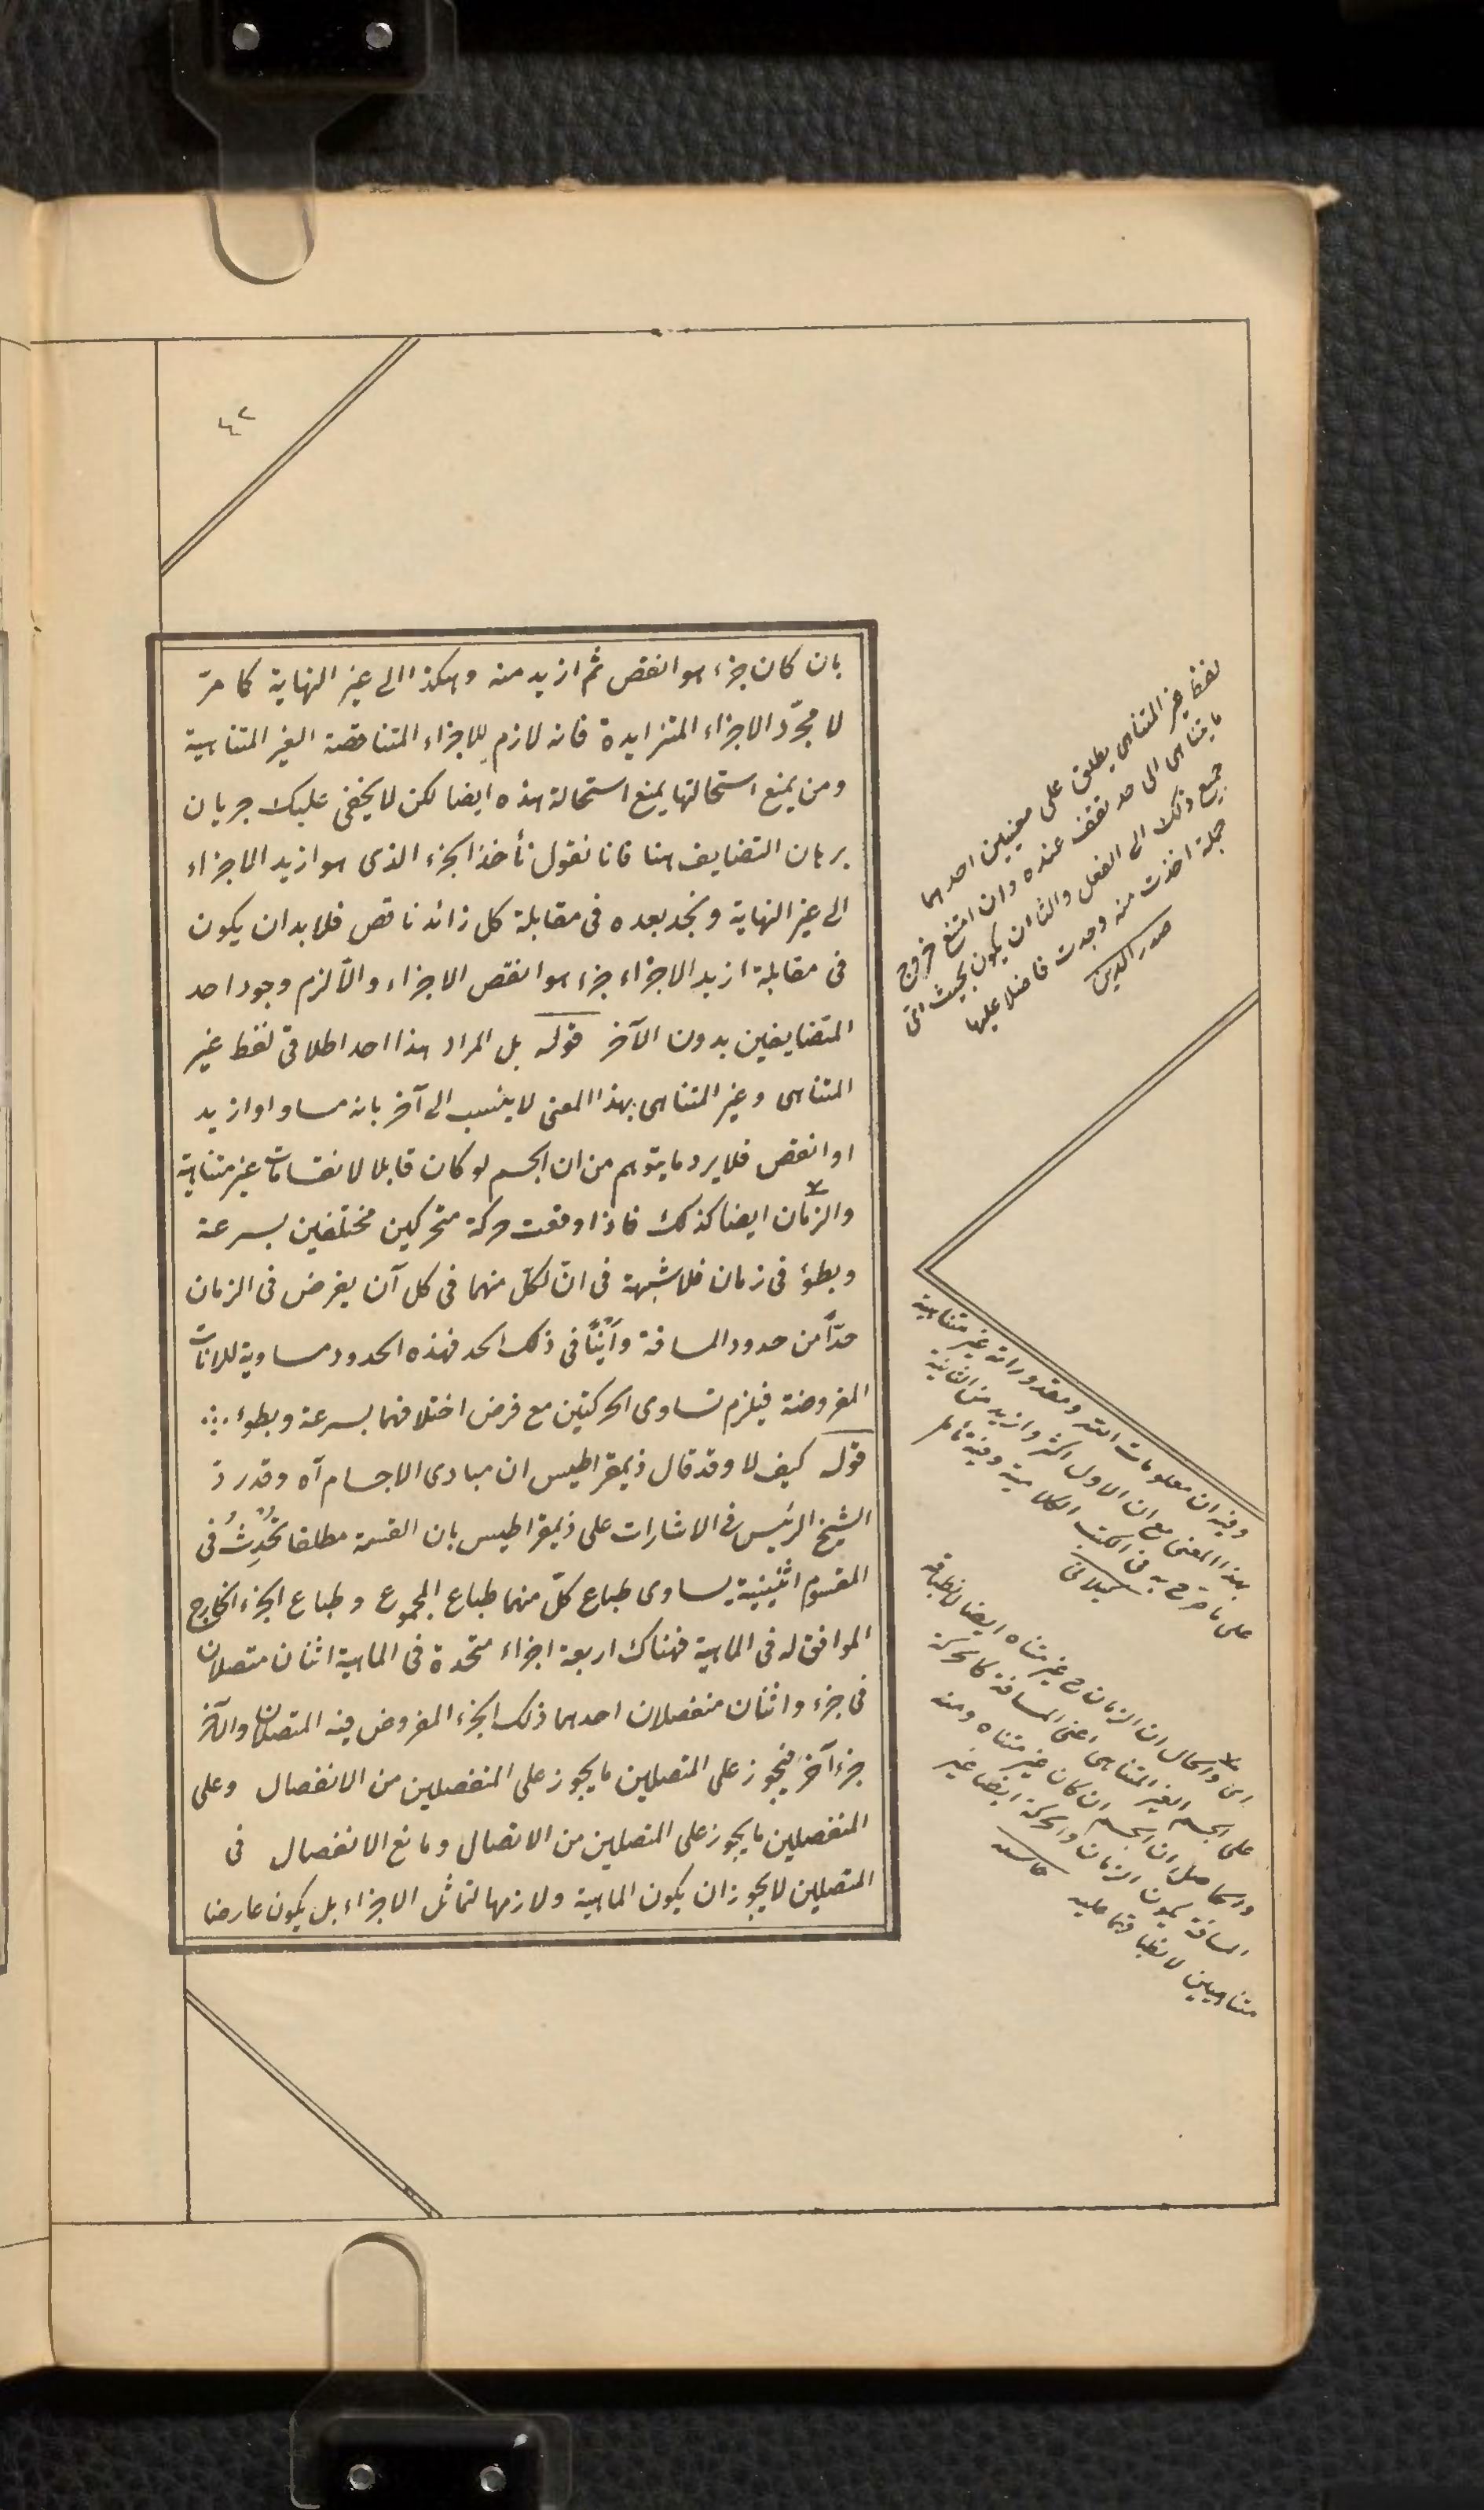 ٤٢
بان كان جزء هو انقص ثم ازيد منه وهكذا الى غير النهاية كما مرّ
لا مجرّد الاجزاء المتزايدة فانه لازم للاجزاء المتناقصة الغير المتناهية
ومن يمنع استحالتها يمنع استحالة هذه ايضا لكن لا يخفى عليك جريان
برهان التضايف هنا فانا نقول نأخذ الجزء الذى هو ازيد الاجزاء
الى غير النهاية ونجد بعده فى مقابلة كل زائد ناقص فلا بد ان يكون
فى مقابلة ازيد الاجزاء جزء هو انقص الاجزاء والّا لزم وجود احد
المتضايفين بدون الآخر قوله بل المراد هذا احد اطلاقى لفظ غير
المتناهى وغير المتناهى بهذا المعنى لا ينسب الى آخر بانه مساو او ازيد
او انقص فلا يرد ما يتوهم من ان الجسم لو كان قابلا لانقسامات غير متناهية
والزمان ايضا كذلك فاذا وقعت حركة متحركين مختلفين بسرعة
وبطؤ فى زمان فلا شبهة فى انّ لكلّ منهما فى كل آن يفرض فى الزمان
حدّاً من حدود المسافة وأيناً فى ذلك الحد فهذه الحدود مساوية للانات
المفروضة فيلزم تساوى الحركتين مع فرض اختلافهما بسرعة وبطوء
قوله كيف لا وقد قال ذيمقراطيس ان مبادى الاجسام آه وقد ردّ
الشيخ الرئيس فى الاشارات على ذيمقراطيس بان القسمة مطلقا تُحْدِثُ فى
المقسوم اثنينية يساوى طباع كلّ منهما طباع المجموع وطباع الجزء الخارج
الموافق له فى الماهية فهناك اربعة اجزاء متحدة فى الماهية اثنان متصلان
فى جزء واثنان منفصلان احدهما ذلك الجزء المفروض فيه المتصلان والآخر
جزء آخر فيجوز على المتصلين ما يجوز على المنفصلين من الانفصال وعلى
المنفصلين ما يجوز على المتصلين من الاتصال ومانع الانفصال فى
المتصلين لا يجوز ان يكون الماهية ولازمها لتماثل الاجزاء بل يكون عارضا
لفظ غير المتناهى يطلق على معنيين احدهما
ما يتناهى الى حد تقف عنده وان امتنع خروج
جميع ذلك الى الفعل والثان ان يكون بحيث اىّ
جملة اخذت منه وجدت فاضلا عليها
صدر الدين
وفيه ان معلومات الله ومقدوراته غير متناهية
بهذا المعنى مع ان الاول اكثر وازيد من الثانية
على ما صرّح به فى الكتب الكلامية وفيه تأمل
كيلانى
اى والحال ان الزمان ح غير متناه ايضا لانطباقه
على الجسم الغير المتناهى اعنى المسافة كالحركة
والحاصل ان الجسم ان كان غير متناه ومنه
المسافة يكون الزمان والحركة ايضا غير
متناهيين لانطباقهما عليه